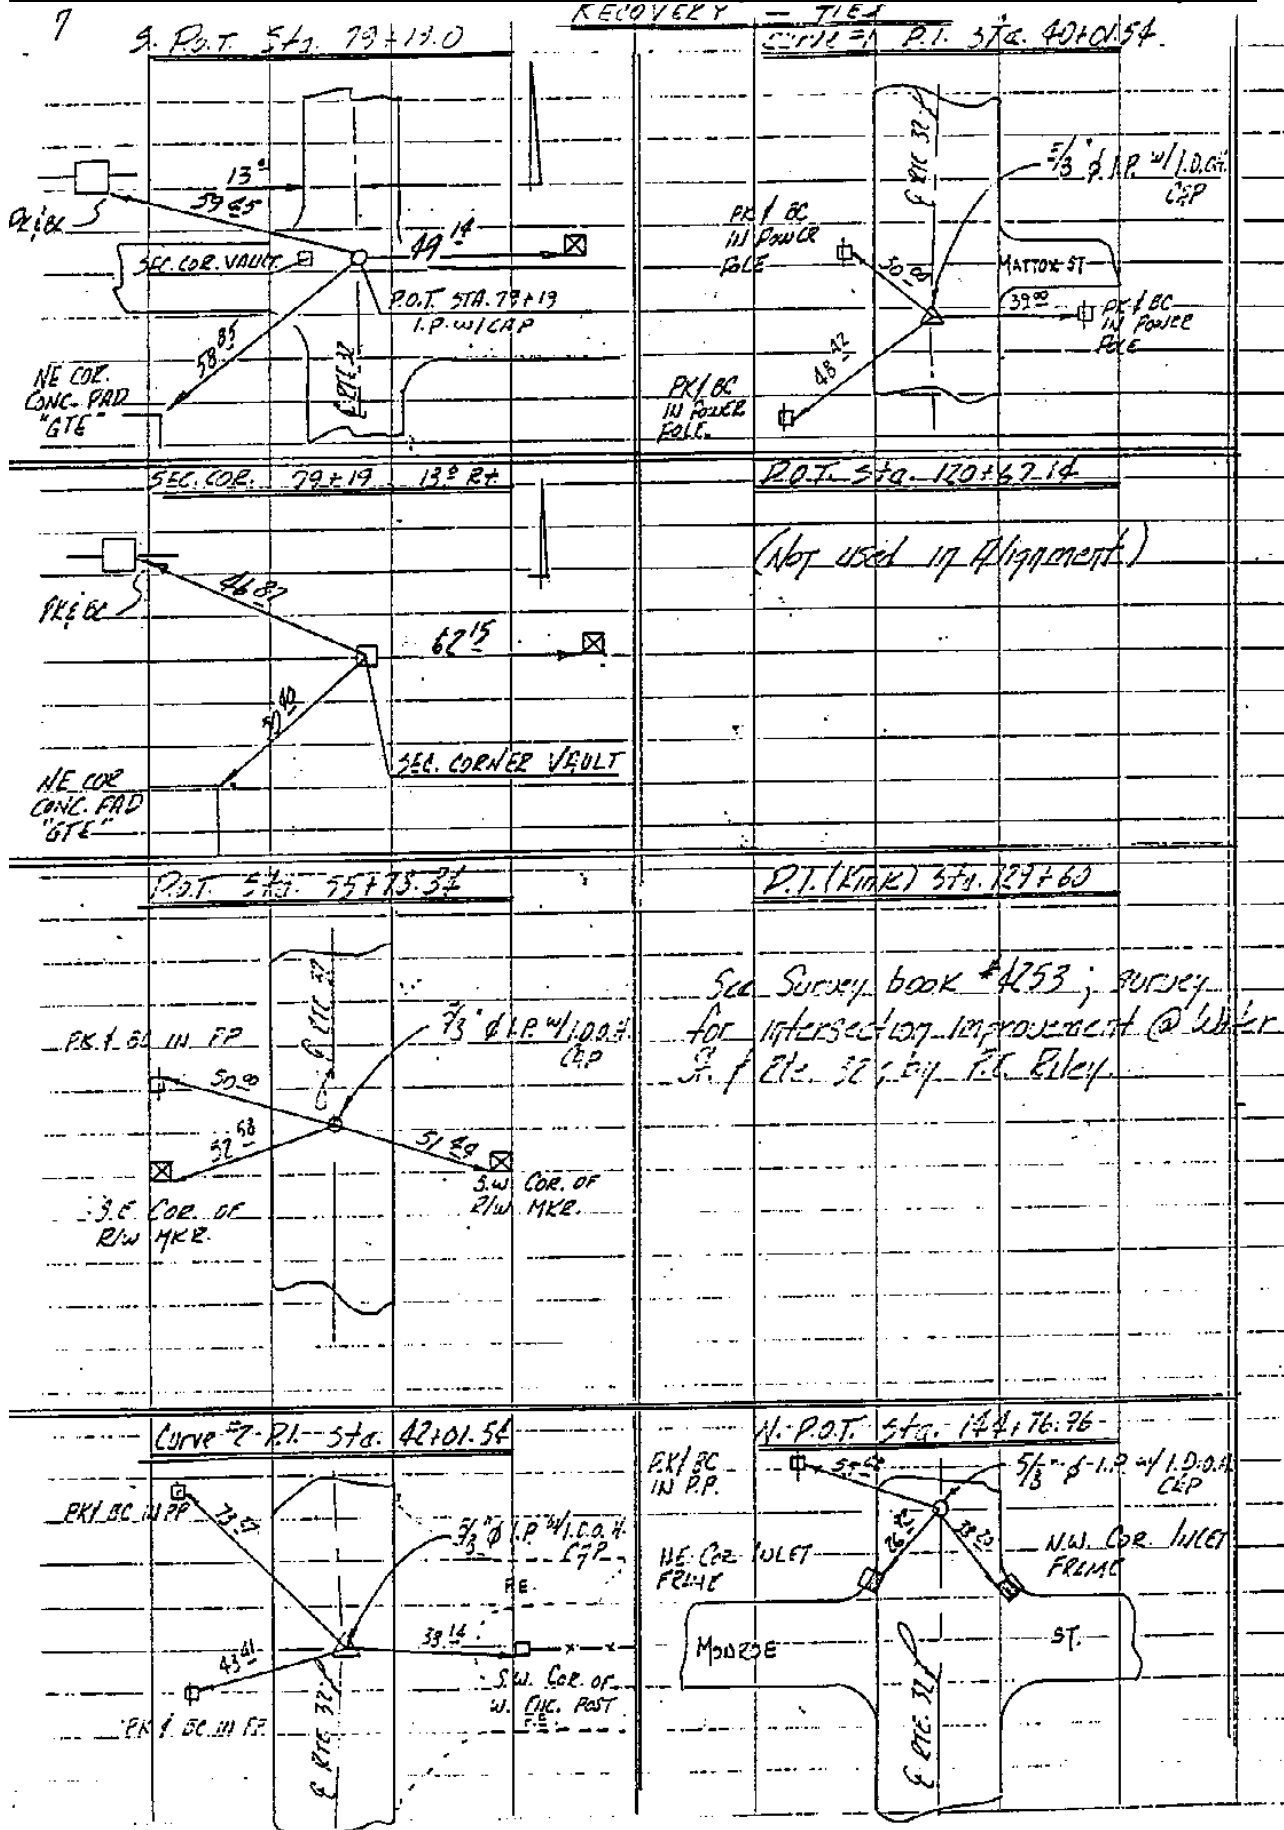 7
RECOVERY — TIES
S. P.O.T. Sta. 79+19.0
13º
59 45
PK & BC
49 14
SEC. COR. VAULT
P.O.T. STA. 79+19
I.P. W/CAP
58 85
NE COR.
CONC. PAD
"GTE"
℄ RTE 32
Curve #1 P.I. Sta. 40+01.54
℄ RTE 32
I.P. w/ I.D.O.H.
CAP
PK & BC
IN POWER
POLE
MATTOX ST
39 00
PK & BC
IN POWER
POLE
48 42
PK & BC
IN POWER
POLE
SEC. COR. 79+19 13º Rt
46 87
PK & BC
62 15
SEC. CORNER VAULT
NE COR
CONC. PAD
"GTE"
P.O.T. Sta. 120+67.14
(Not used in Alignment)
P.O.T. Sta. 55+73.34
℄ RTE 32
PK & BC IN PP
I.P. w/ I.D.O.H.
CAP
50 90
52 58
51 49
S.E. COR. OF
R/W MKR.
S.W. COR. OF
R/W MKR.
P.T. (Kink) Sta. 129+60
See Survey book #4253; survey
for intersection improvement @ Water
St. & Rte. 32; by P.E. Riley.
Curve #2 P.I. Sta. 42+01.54
PK & BC IN PP
I.P. w/ I.D.O.H.
CAP
F.E.
43 41
S.W. COR. OF
W. FNC. POST
PK & BC IN PP
℄ RTE. 32
N. P.O.T. Sta. 144+76.76
PK & BC
IN P.P.
I.P. w/ I.D.O.H.
CAP
NE COR INLET
FRAME
38 20
N.W. COR. INLET
FRAME
MONROE
ST.
℄ RTE. 32